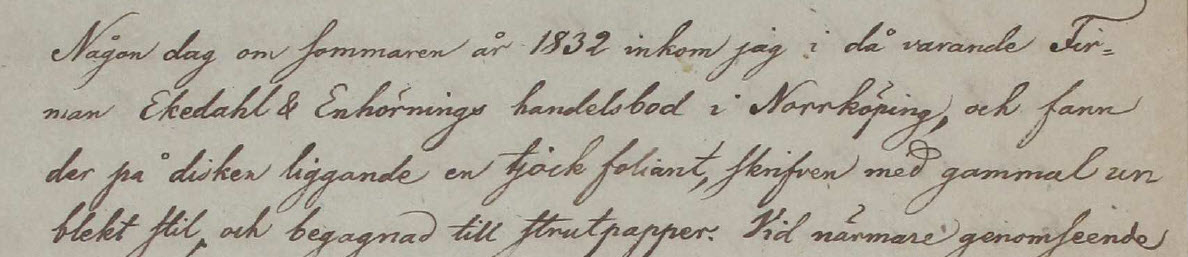 Någon dag om sommaren år 1832 inkom jag i då varande Fir=
man Ekedahl & Enhörnings handelsbod i Norrköping, och fann
der på disken liggande en tjock foliant, skrifven med gammal un
blekt stil, och begagnad till strutpapper. Vid närmare genomseende